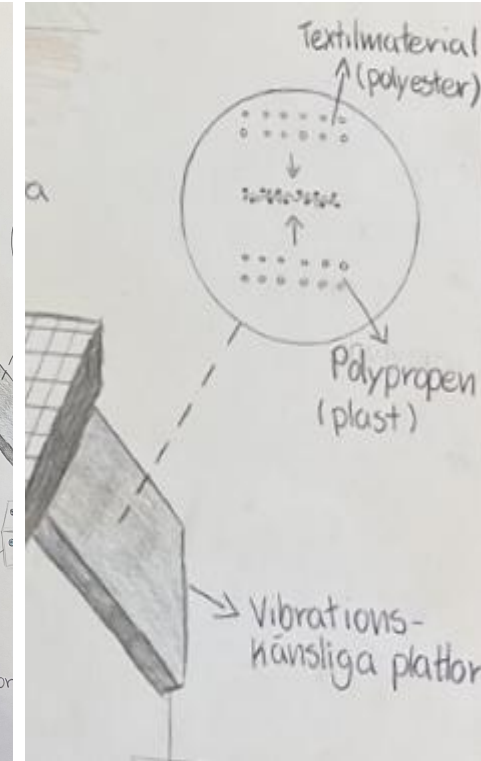 Textilmaterial
(polyester)
a
Polypropen
(plast)
Vibrations-
känsliga plattor
or